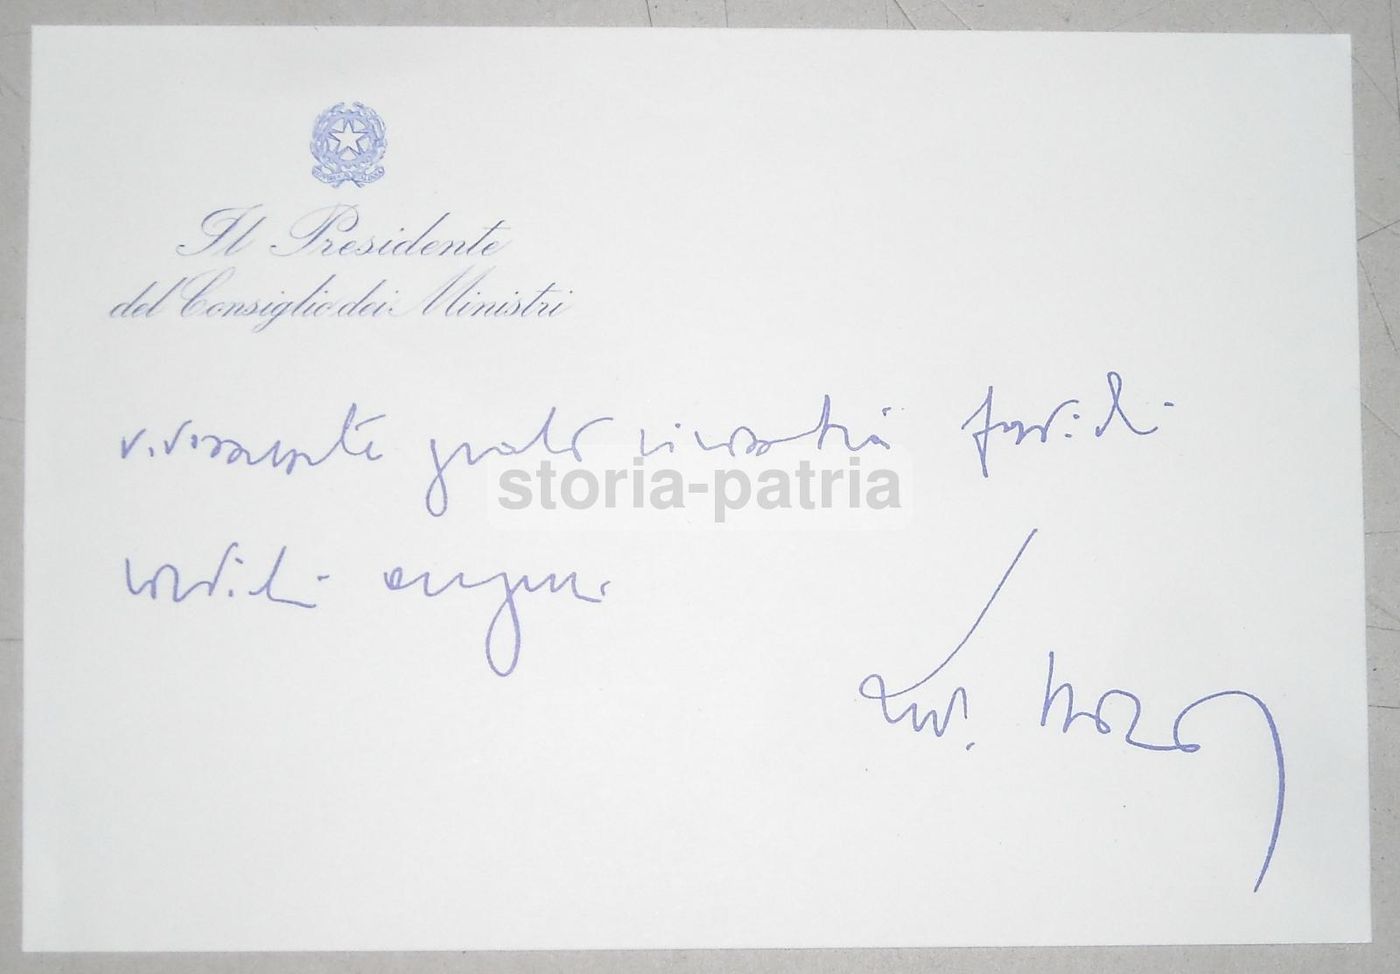 Il Presidente
del Consiglio dei Ministri
vivamente grato ricambia
storia-patria
cordiali auguri
Moro